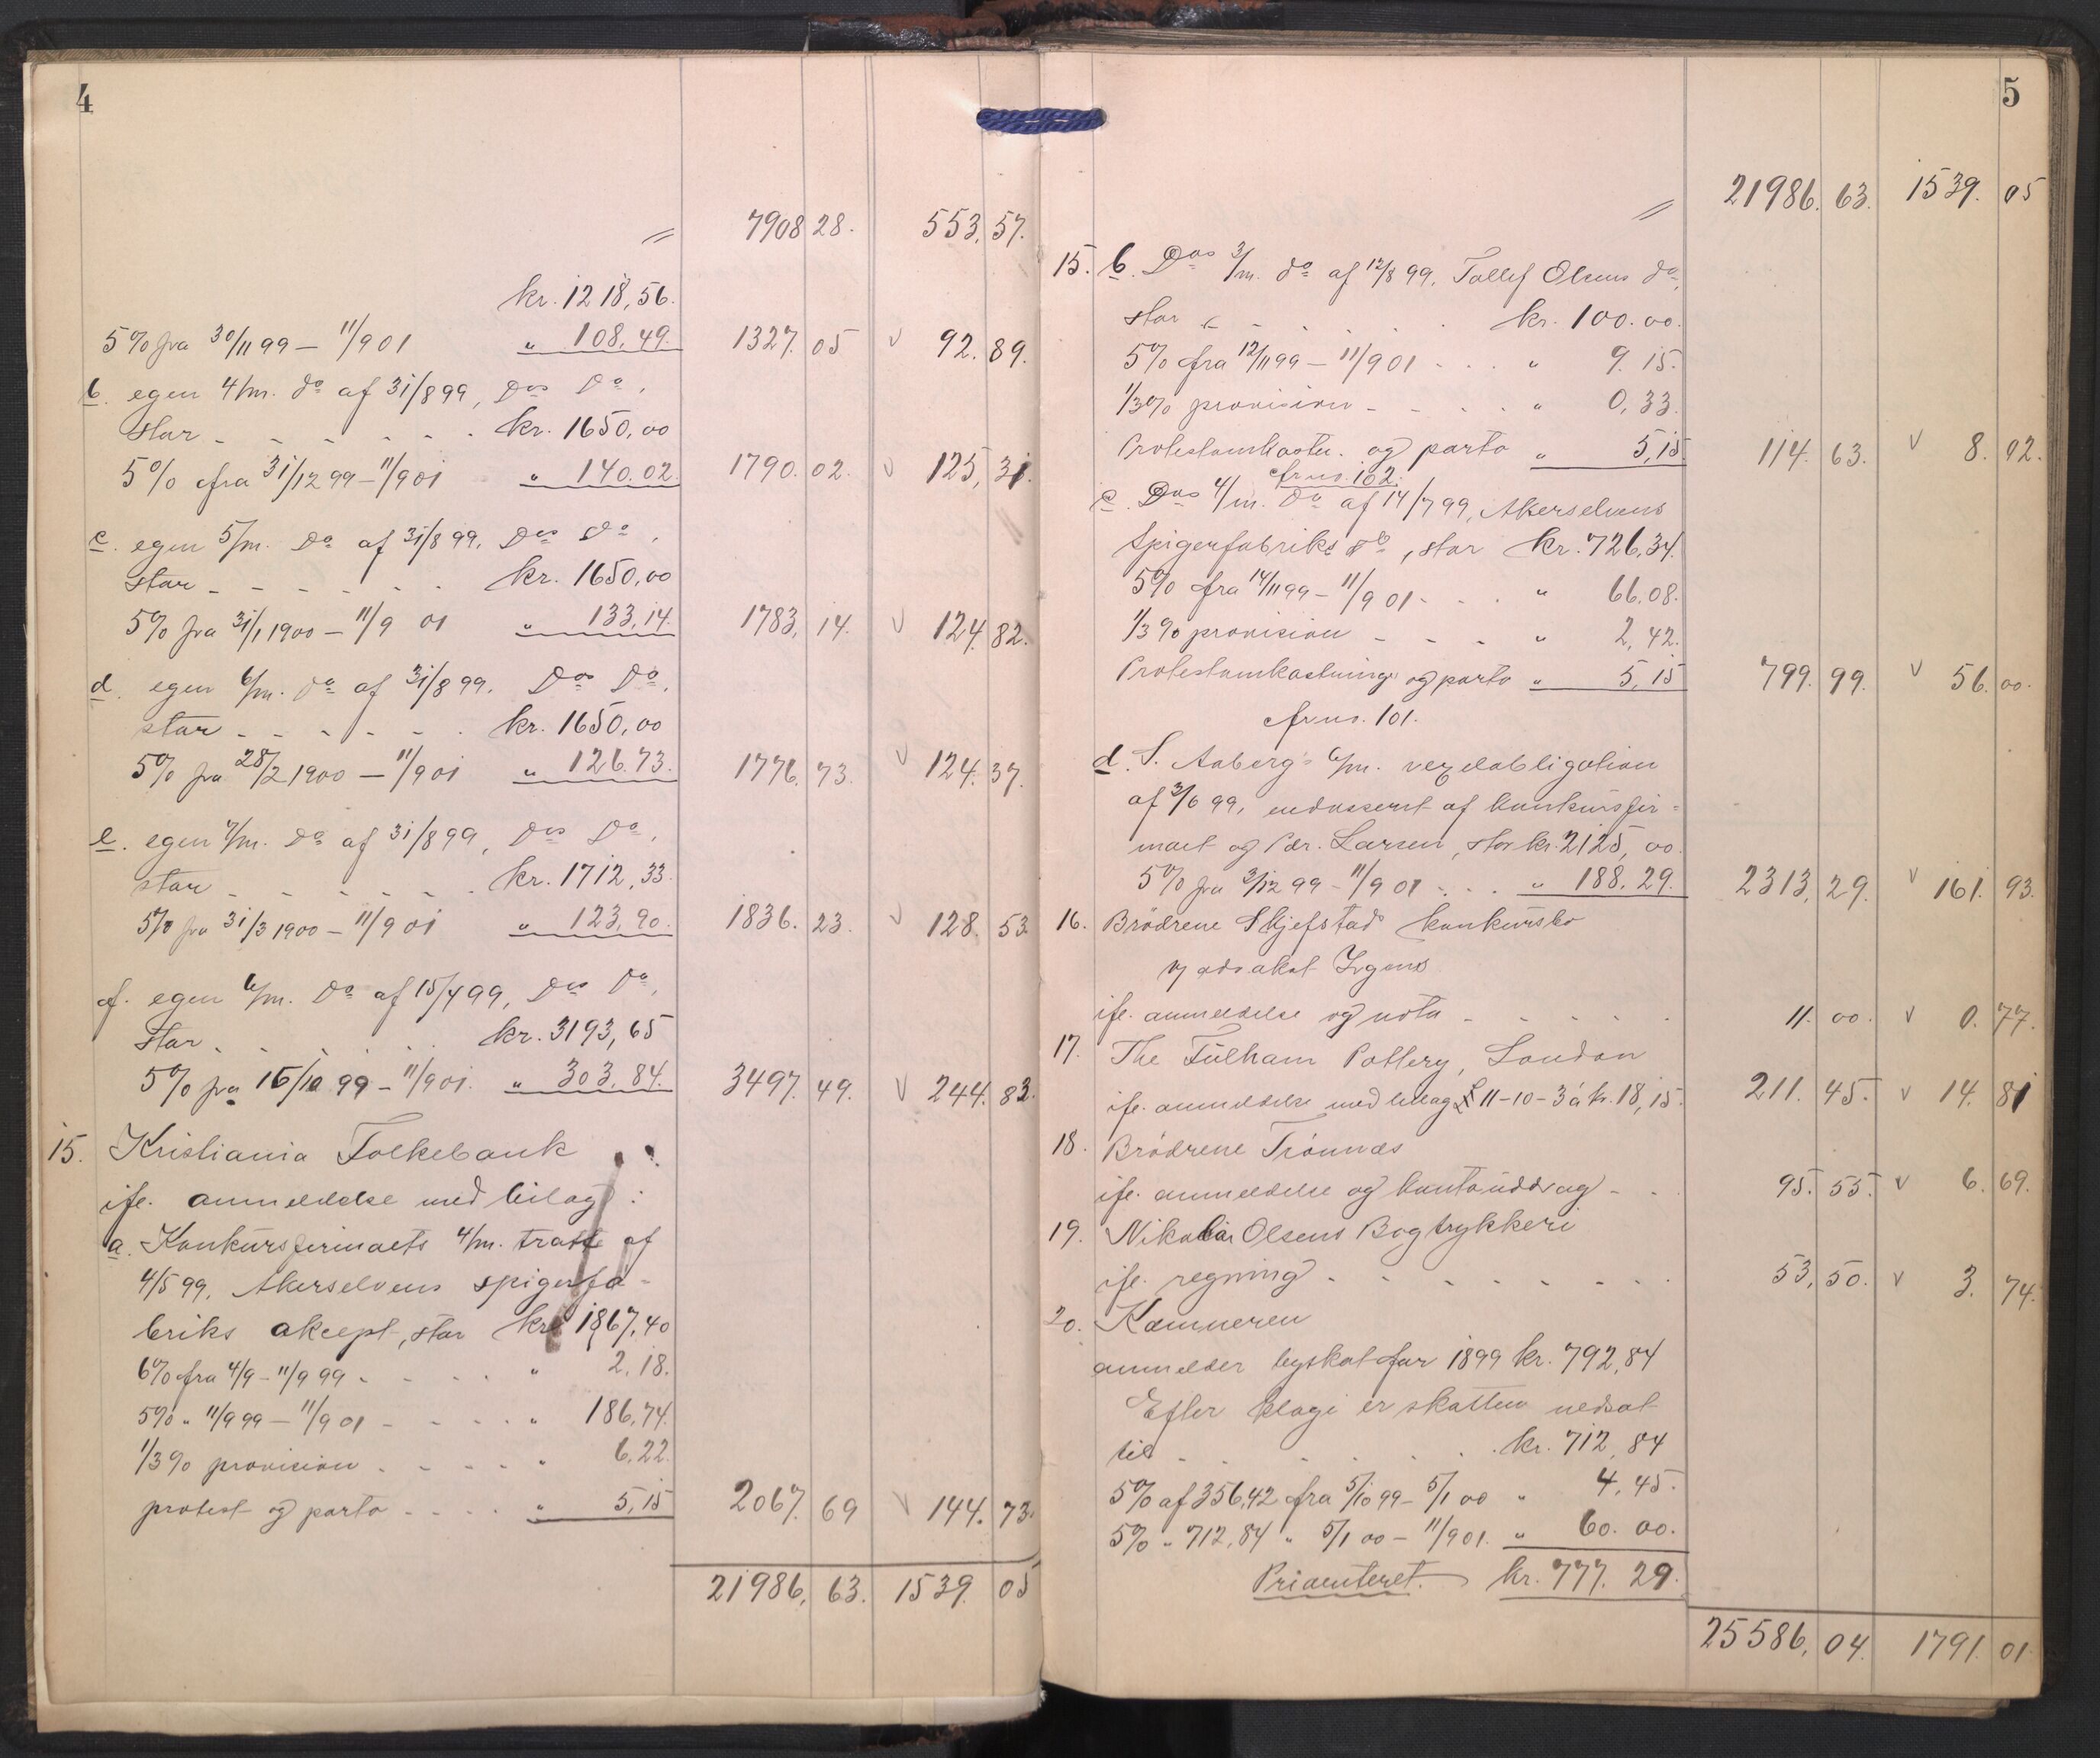 4
〃 7908 28. 553,57.
kr. 1218,56.
5% fra 30/11 99 – 11/9 01 „ 108,49. 1327.05 v 92.89.
b. egen 4/m. do af 31/8 99, Dos Do,
stor - - - - - - kr. 1650,00
5% fra 31/12 99 – 11/9 01 „ 140.02. 1790.02. v 125,31.
c. egen 5/m. Do af 31/8 99, Dos Do,
stor - - - - - - kr. 1650,00
5% fra 31/1 1900 – 11/9 01 „ 133,14. 1783,14. v 124.82.
d. egen 6/m. Do af 31/8 99. Dos Do,
stor - - - - - - kr. 1650,00
5% fra 28/2 1900 – 11/9 01 „ 126.73. 1776.73. v 124.37.
e. egen 7/m. Do af 31/8 99, Dos Do,
stor - - - - - - kr. 1712,33.
5% fra 31/3 1900 – 11/9 01 „ 123,90. 1836.23. v 128.53.
f. egen 6/m. Do af 15/4 99, Dos Do,
stor - - - - - - kr. 3193,65
5% fra 15/10 99 – 11/9 01. „ 303,84. 3497.49. v 244.83.
15. Kristiania Folkebank
ifl. anmeldelse med bilag:
a. Konkursfirmaets 4/m. tratte af
4/5 99, Akerselvens spigerfa-
briks akcept, stor kr. 1867,40
6% fra 4/9 – 11/9 99 - - - - „ 2,18.
5% „ 11/9 99 – 11/9 01 - - - - „ 186,74.
1/3% provision - - - - „ 6.22.
protest og porto - - - - „ 5,15 2067.69 v 144.73.
21986,63. 1539.05
5
〃 21986.63. 1539.05
15. b. Dos 3/m. do af 12/8 99, Tollef Olsens do,
stor - - - - - - kr. 100.00.
5% fra 12/11 99 – 11/9 01 - - - „ 9.15.
1/3% provision - - - - „ 0,33.
Protestomkostn. og porto „ 5,15 114.63. v 8.02.
cfr no. 162.
c. Dos 4/m. Do af 14/7 99, Akerselvens
Spigerfabriks do, stor kr. 726,34.
5% fra 14/11 99 – 11/9 01 - - - „ 66.08.
1/3% provision - - - - „ 2,42.
Protestomkostning og porto „ 5,15 799.99. v 56.00.
cfr no. 101.
d. S. Aaberg's 6/m. vexelobligation
af 3/6 99, endosseret af konkursfir-
maet og Pr. Larsen, stor kr. 2125,00.
5% fra 3/12 99 – 11/9 01 - - - „ 188.29. 2313,29. v 161.93.
16. Brödrene Skjefstad konkursbo
v/ advokat Irgens
ifl. anmeldelse og nota - - - - - 11.00. v 0.77.
17. The Fulham Pottery, London
ifl. anmeldelse med bilag £ 11-10-3 á kr. 18,15. 211.45. v 14.81
18. Brödrene Trönnæs
ifl. anmeldelse og kontoüddrag - - 95.55. v 6.69.
19. Nikolai Olsens Bogtrykkeri
ifl. regning - - - - - - - 53,50. v 3.74.
20. Kæmneren
anmelder byskat for 1899 kr. 792,84
Efter klage er skatten nedsat
til - - - - - - kr. 712,84
5% af 356,42 fra 5/10 99 – 5/1 00 „ 4,45.
5% „ 712,84 „ 5/1 00 – 11/9 01. „ 60.00.
Prioriteret. kr. 777.29.
25586,04. 1791.01